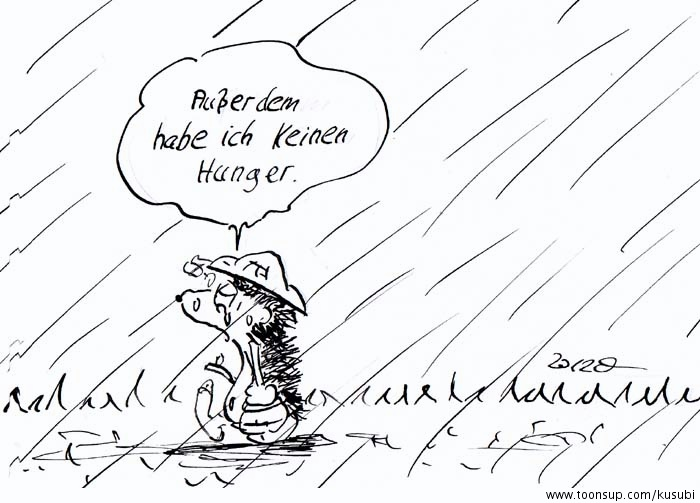 Außerdem
habe ich keinen
Hunger.
www.toonsup.com/kusubi